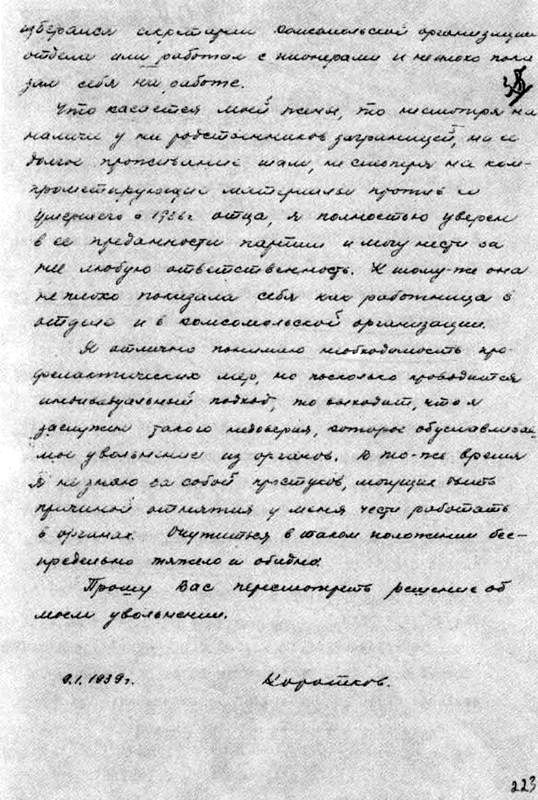 избирался секретарем комсомольской организации
отдела или работал с пионерами и неплохо пока
зал себя на работе.
Что касается моей жены, то несмотря на
наличие у ней родственников заграницей, на ее
долгое проживание там, несмотря на ком-
прометирующие материалы против ее
умершего в 1936 г отца, я полностью уверен
в ее преданности партии и могу нести за
нее любую ответственность. К тому-же она
неплохо показала себя как работница в
отделе и в комсомольской организации.
Я отлично понимаю необходимость про-
филактических мер, но поскольку проводится
индивидуальный подход, то выходит, что я
заслужил такого недоверия, которое обуславлива
мое увольнение из органов. В то-же время
я не знаю за собой проступков, могущих быть
причиной отнятия у меня чести работать
в органах. Очутиться в таком положении бес-
предельно тяжело и обидно.
Прошу Вас пересмотреть решение об
моем увольнении.
9.1.1939 г. Коротков.
223